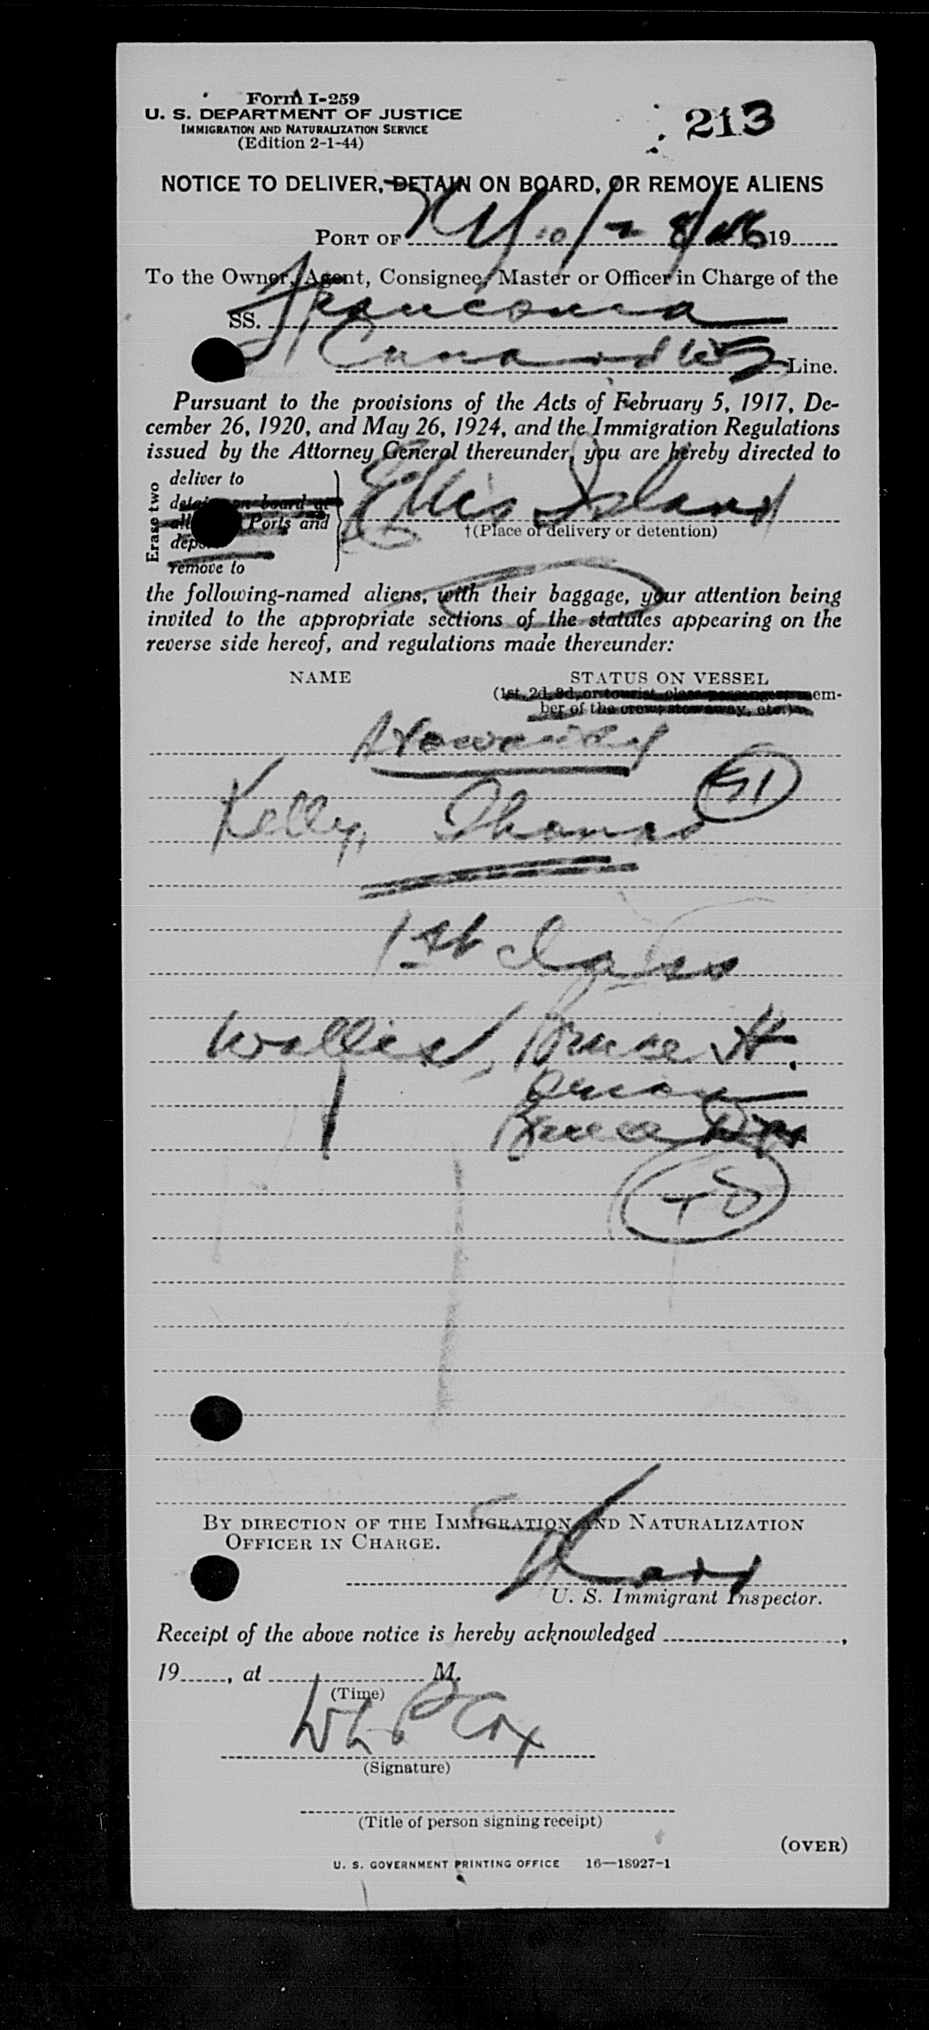 Form I-259
U. S. DEPARTMENT OF JUSTICE
IMMIGRATION AND NATURALIZATION SERVICE
(Edition 2-1-44)
213
NOTICE TO DELIVER, DETAIN ON BOARD, OR REMOVE ALIENS
PORT OF NY 19
To the Owner, Agent, Consignee, Master or Officer in Charge of the
SS. Franconia
Cunard Line.
Pursuant to the provisions of the Acts of February 5, 1917, De-
cember 26, 1920, and May 26, 1924, and the Immigration Regulations
issued by the Attorney General thereunder, you are hereby directed to
Erase two
deliver to
detain on board at
all Ports and
remove to
Ellis Island
†(Place of delivery or detention)
the following-named aliens, with their baggage, your attention being
invited to the appropriate sections of the statutes appearing on the
reverse side hereof, and regulations made thereunder:
NAME STATUS ON VESSEL
(1st, 2d, 3d, or tourist class passenger, mem-
ber of the crew, stowaway, etc.)
Stowaway
Kelly, Thomas
1st class
Wallis, Bruce H.
Bruce
BY DIRECTION OF THE IMMIGRATION AND NATURALIZATION
OFFICER IN CHARGE.
U. S. Immigrant Inspector.
Receipt of the above notice is hereby acknowledged ,
19 , at M.
(Time)
Cox
(Signature)
(Title of person signing receipt)
(OVER)
U. S. GOVERNMENT PRINTING OFFICE 16—18927-1